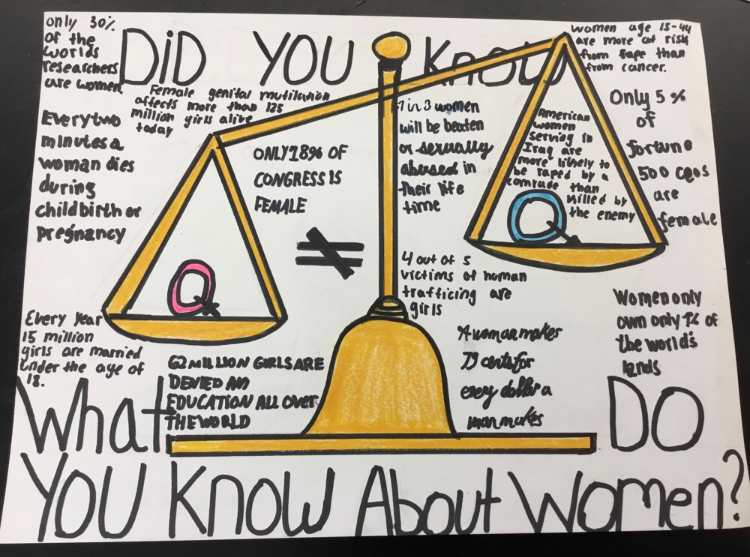 only 30%
of the
worlds
researchers
are women
DiD YOU Know
women age 15-44
are more at risk
from rape than
from cancer.
Female genital mutilation
affects more than 125
million girls alive
today
Every two
minutes a
woman dies
during
childbirth or
pregnancy
ONLY 18% OF
CONGRESS IS
FEMALE
1 in 3 women
will be beaten
or sexually
abused in
their life
time
American
women
serving in
Iraq are
more likely to
be raped by a
comrade than
killed by
the enemy
Only 5%
of
fortune
500 ceos
are
female
Q
≠
Q
4 out of 5
victims of human
trafficing are
girls
Every year
15 million
girls are married
under the age of
18.
62 MILLION GIRLS ARE
DENIED AN
EDUCATION ALL OVER
THE WORLD
A woman makes
79 cents for
every dollar a
man makes
Women only
own only 1% of
the world's
lands
What DO
YOU Know About Women?